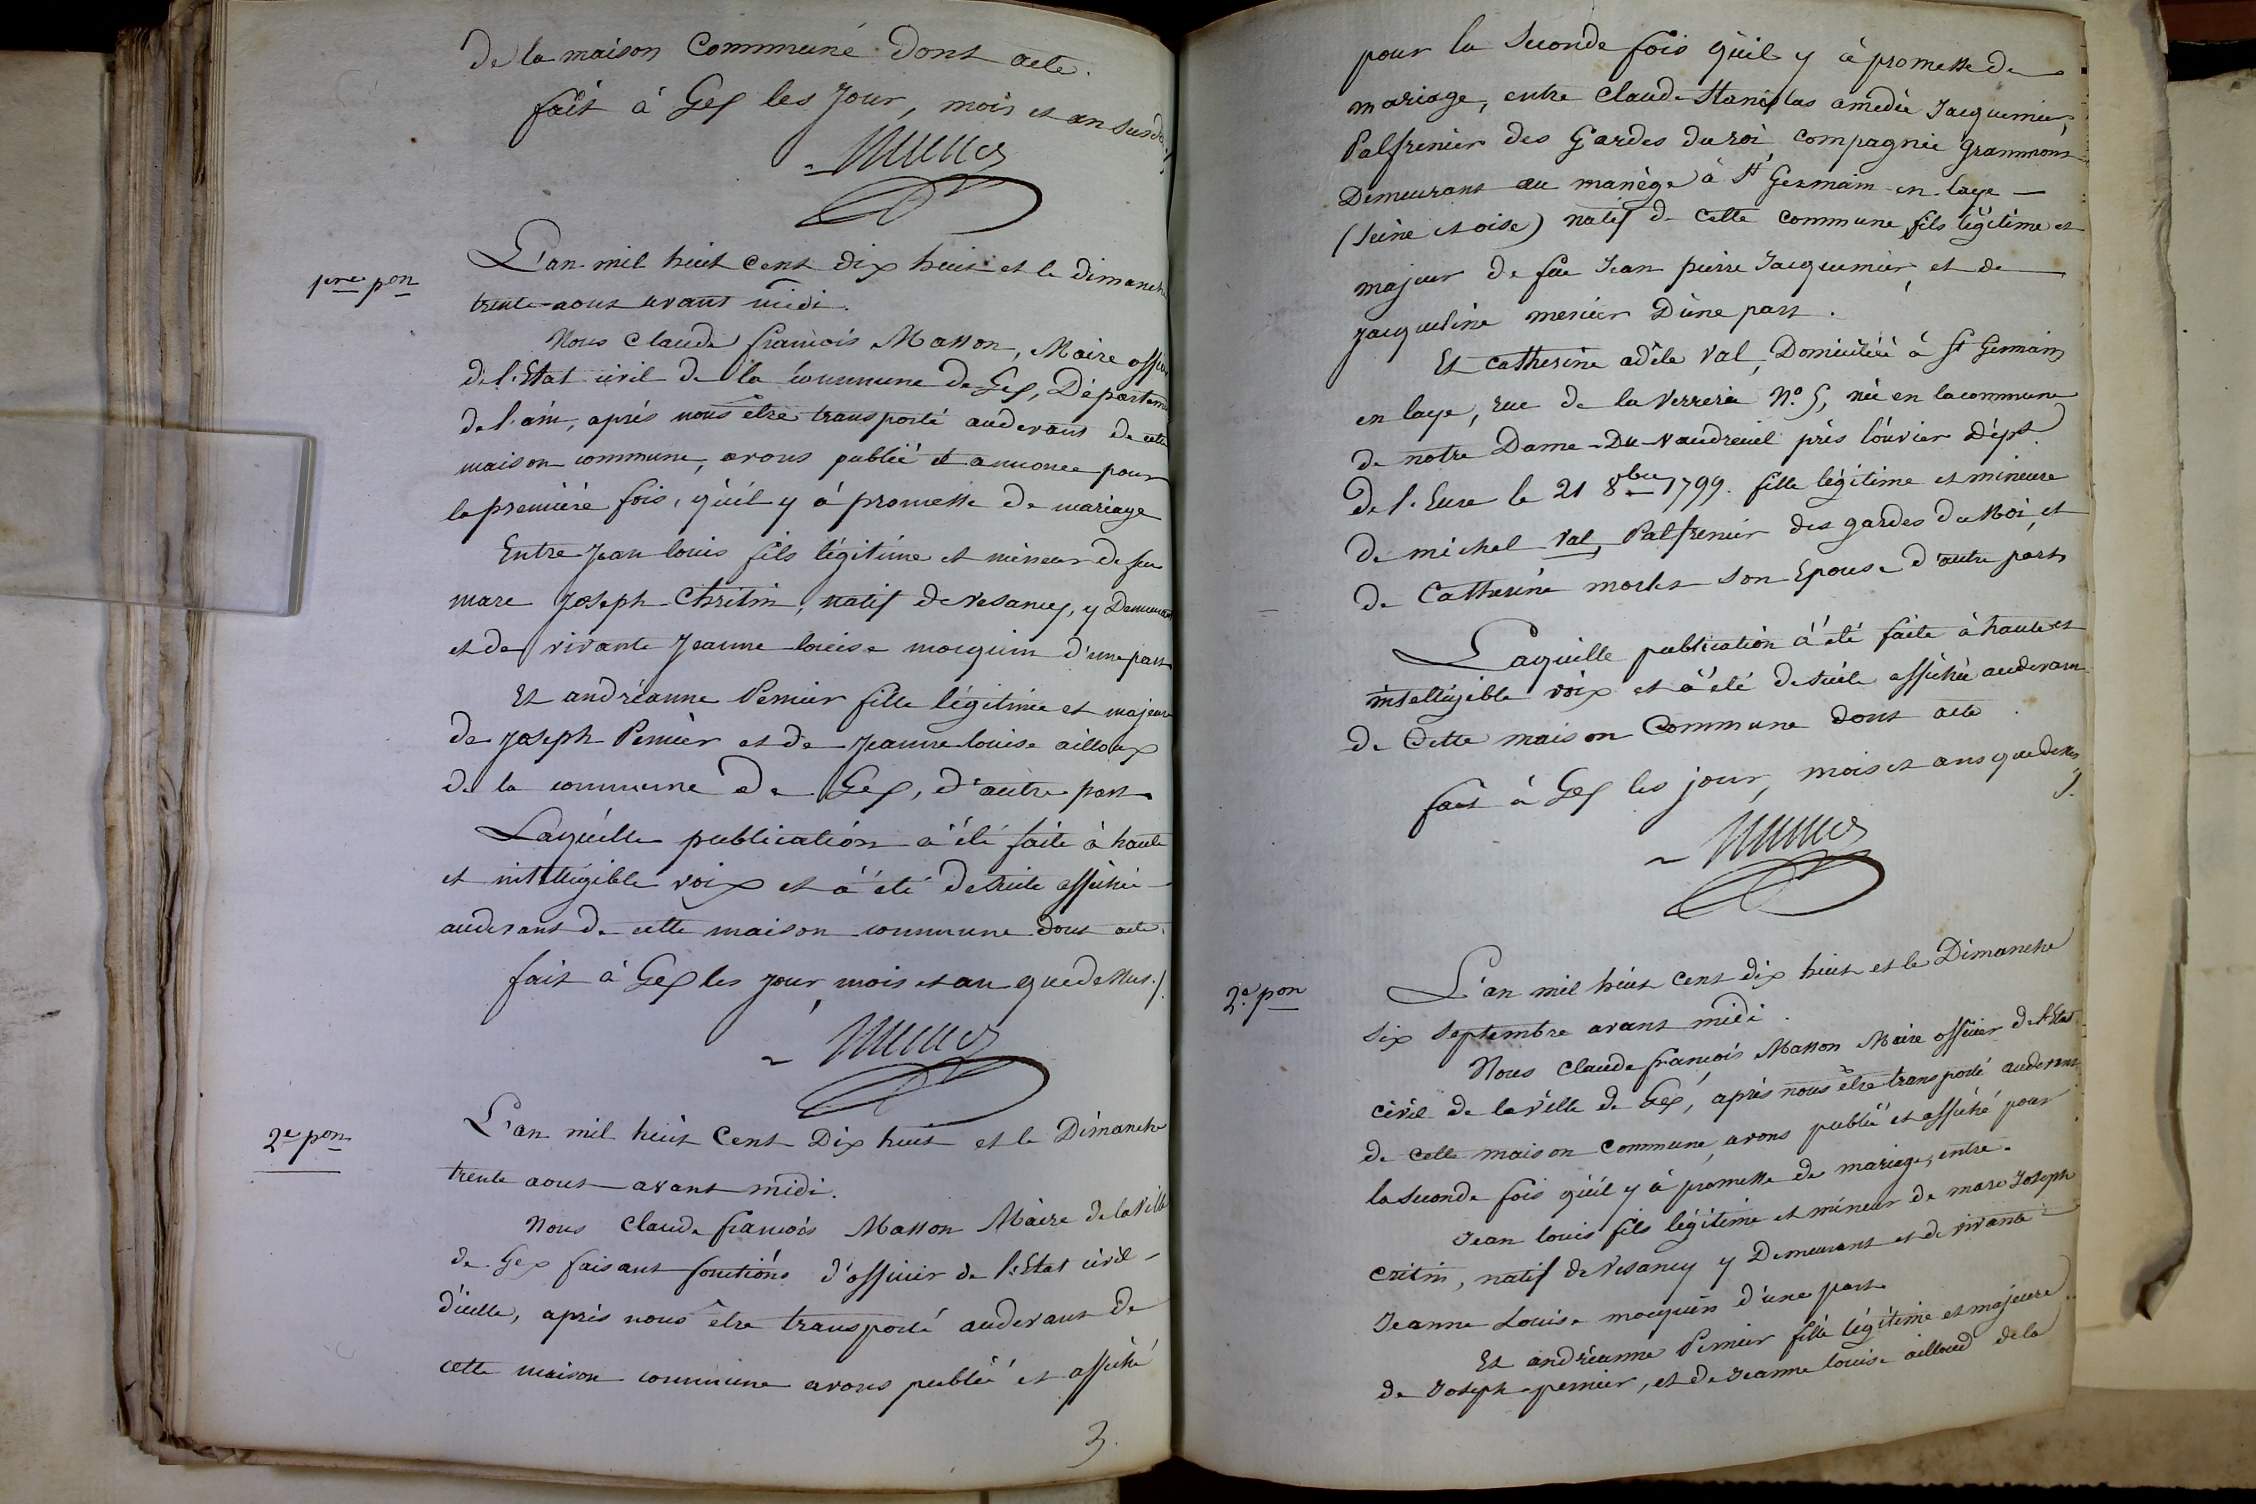 de la maison Commune dont acte.
fait à Gex les Jour, mois et an susdits
1re pon
L'an mil huit Cent dix huit et le dimanche
trente aout avant midi.
Nous Claude francois Masson, Maire officier
de l'Etat civil de la Commune de Gex, Département
de l'ain, aprés nous être transporté audevant de cette
maison commune, avons publié et annoncé pour
la premiére fois, qu'il y à promesse de mariage
Entre Jean louis fils légitime et mineur de feu
marc Joseph Chritin, natif de Vesancy, y Demeurant
et de vivante Jeanne louise mocquin d'une part
Et andréanne Pernier fille légitime et majeure
de Joseph Pernier et de Jeanne louise ailloux
de la commune de Gex, d'autre part.
Laquelle publication à été faite à haute
et intelligible voix et à été desuite affichée
audevant de cette maison commune dont acte.
fait à Gex les jour, mois et an que dessus./.
2e pon
L'an mil huit Cent Dix huit et le Dimanche
trente aout avant midi.
Nous Claude francois Masson Maire de la Ville
de Gex faisant fonctions d'officier de l'Etat civil
d'icelle, aprés nous être transporté audevant de
cette maison commune avons publié et affiché
3.
pour la Seconde fois qu'il y à promesse de
mariage, entre Claude Stanislas amedée Jacquemier,
Palfrenier des Gardes du roi, compagnie Grammont
Demeurant au manège à St Germain en laye
(Seine et oise) natif de cette commune fils légitime et
majeur de feu Jean pierre Jacquemier, et de
Jacqueline menier D'une part.
Et Catherine adèle Val, Domiciliée à St Germain
en laye, rue de la Verrerie No 5, née en la commune
de notre Dame-Du-Vaudreuil près Louvier dépt.
de l'Eure le 21 8bre 1799. fille légitime et mineure
de michel Val, Palfrenier des gardes du Roi, et
de Catherine son Epouse d'autre part
Laquelle publication à été faite à haute et
intelligible voix et à été desuite affichée audevant
de Cette maison Commune dont acte.
fait à Gex les jour, mois et ans que dessus
2e pon
L'an mil huit Cent dix huit et le Dimanche
six Septembre avant midi.
Nous Claude francois Masson Maire officier de l'Etat
civil de la Ville de Gex, aprés nous être transporté audevant
de cette maison Commune, avons publié et affiché pour
la seconde fois qu'il y à promesse de mariage, entre.
Jean louis fils légitime et mineur de marc Joseph
Critin, natif de Vesancy y Demeurant et de vivante
Jeanne Louise mocquin d'une part
Et andréanne Pernier fille légitime et majeure
de Joseph pernier, et de Jeanne louise ailloud de la